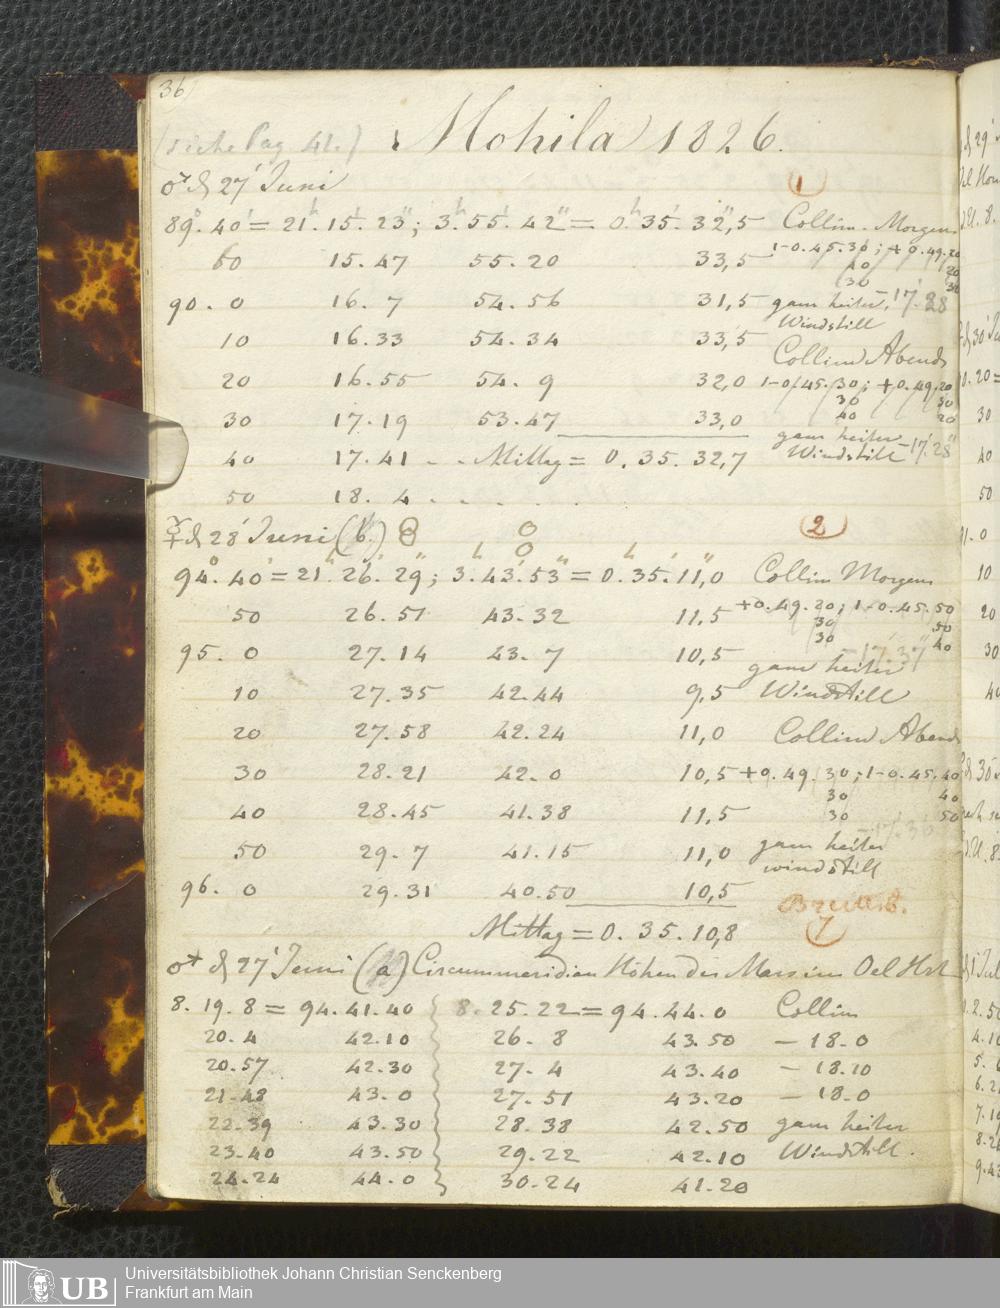 36
(siehe Pag 41.) Mohila 1826.
♂ d 27' Juni (1)
89°. 40' = 21h. 15'. 23"; 3h. 55'. 42" = 0h. 35'. 32",5 Collim. Morgens
50 15. 47 55. 20 33,5 1-0.45.30; +0.49.20
40 20
30 30
90. 0 16. 7 54. 56 31,5 ganz heiter, -17'. 28
Windstill
10 16. 33 54. 34 33,5
Collim Abends
20 16. 55 54. 9 32,0 1-0.45.30; +0.49.20
30 30
30 17. 19 53. 47 33,0 40 20
ganz heiter -17'. 28"
40 17. 41 - - Mittag = 0. 35. 32,7 Windstill
50 18. 4 - . . . .
☿ d 28' Juni (b.) (2)
94°. 40' = 21h. 26'. 29"; 3h. 43'. 53" = 0h. 35'. 11",0 Collim Morgens
50 26. 51 43. 32 11,5 +0.49.20; 1-0.45.50
30 50
30 40
95. 0 27. 14 43. 7 10,5 -17'. 37"
ganz heiter
10 27. 35 42. 44 9,5 Windstill
20 27. 58 42. 24 11,0 Collim Abends
30 28. 21 42. 0 10,5 +0.49.30; 1-0.45.40
30 40
40 28. 45 41. 38 11,5 30 50
50 29. 7 41. 15 11,0 ganz heiter
windstill
96. 0 29. 31 40. 50 10,5
Mittag = 0. 35. 10,8 7
♂ d 27' Juni (a) Circummeridian Höhen des Mars im Oel Hrt
8. 19. 8 = 94. 41. 40 8. 25. 22 = 94. 44. 0 Collim
20. 4 42. 10 26. 8 43. 50 - 18. 0
20. 57 42. 30 27. 4 43. 40 - 18. 10
21. 48 43. 0 27. 51 43. 20 - 18. 0
22. 39 43. 30 28. 38 42. 50 ganz heiter
23. 40 43. 50 29. 22 42. 10 Windstill.
24. 24 44. 0 30. 24 41. 20
UB Universitätsbibliothek Johann Christian Senckenberg
Frankfurt am Main